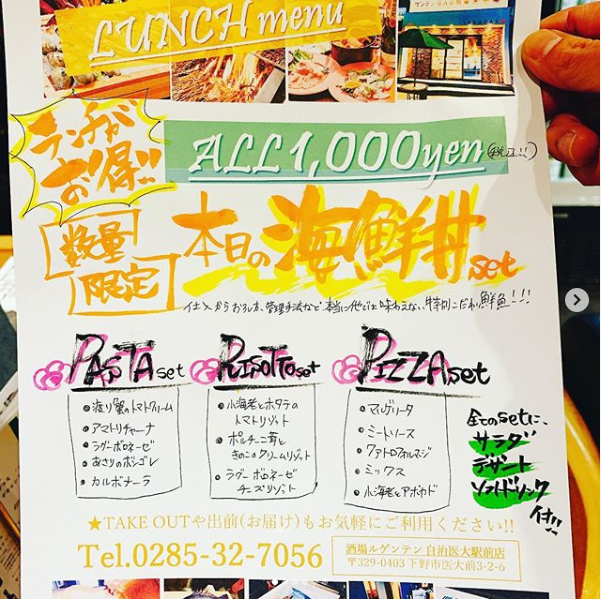 LUNCH menu
ランチが
お得!!
ALL 1,000yen(税込!!)
数量
限定
本日の海鮮丼set
仕入からおろし方、管理手法など、本当に他では味わえない、特別こだわり鮮魚!!!
PASTA set
・渡り蟹のトマトクリーム
・アマトリチャーナ
・ラグーボロネーゼ
・あさりのボンゴレ
・カルボナーラ
RISOTTO set
・小海老とホタテの
トマトリゾット
・ポルチーニ茸と
きのこクリームリゾット
・ラグーボロネーゼ
チーズリゾット
PIZZA set
・マルゲリータ
・ミートソース
・クアトロフォルマッジ
・ミックス
・小海老とアボカド
全てのsetに、
サラダ
デザート
ソフトドリンク
付!!
★TAKE OUTや出前(お届け)もお気軽にご利用ください!!
Tel.0285-32-7056
酒場ルゲンテン 自治医大駅前店
〒329-0403 下野市医大前3-2-6